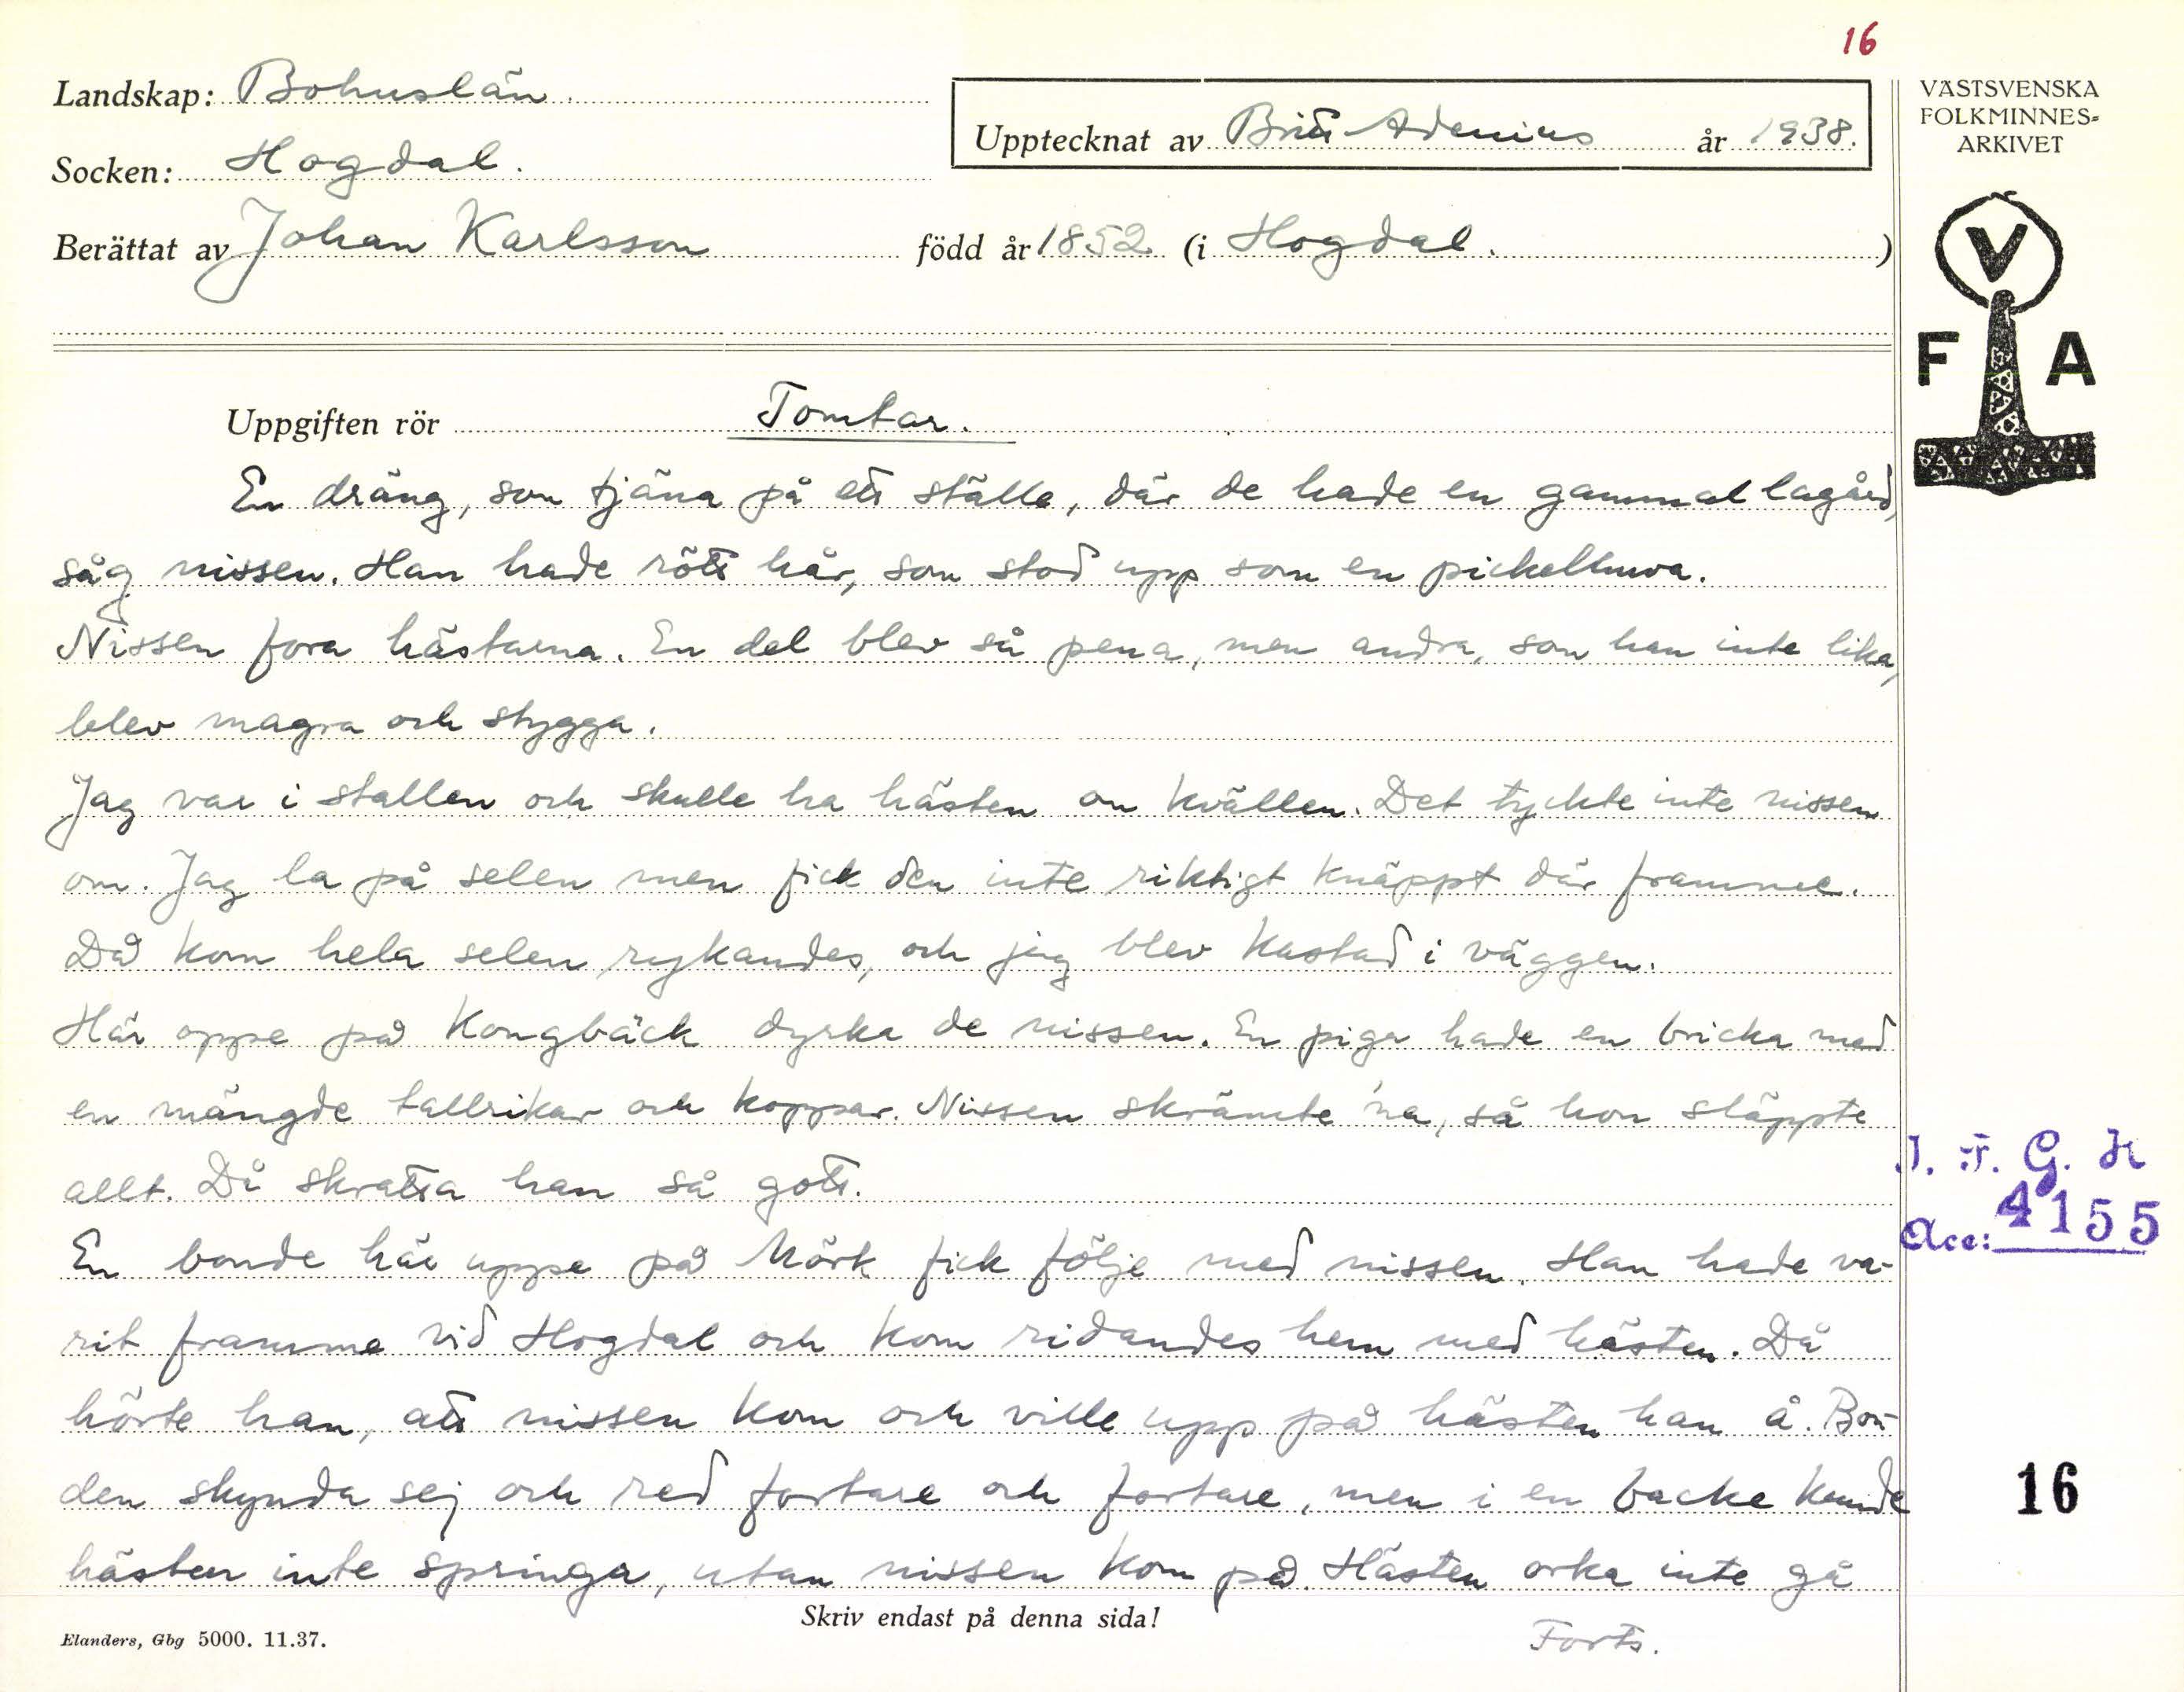 16
Landskap: Bohuslän.
Socken: Hogdal.
Upptecknat av Britt Adenius år 1938.
Berättat av Johan Karlsson född år 1852 (i Hogdal.)
VÄSTSVENSKA
FOLKMINNES=
ARKIVET
V
F A
Uppgiften rör Tomtar.
En dräng, som tjäna på ett ställe, där de hade en gammal lagård,
såg nissen. Han hade rött hår, som stod upp som en pickelhuva.
Nissen fora hästarna. En del blev så pena, men andra, som han inte lika,
blev magra och stygga.
Jag var i stallen och skulle ha hästen om kvällen. Det tyckte inte nissen
om. Jag la på selen men fick den inte riktigt knäppt där framme.
Då kom hela selen rykandes, och jag blev kastad i väggen.
Här oppe på Kongbäck dyrka de nissen. En piga hade en bricka med
en mängde tallrikar och koppar. Nissen skrämte 'na, så hon släppte
allt. Då skratta han så gott.
En bonde här uppe på Mörk fick följe med nissen. Han hade va-
rit framme vid Hogdal och kom ridandes hem med hästen. Då
hörte han, att nissen kom och ville upp på hästen han å. Bon-
den skynda sej och red fortare och fortare, men i en backe kunde
hästen inte springa, utan nissen kom på. Hästen orka inte gå
Forts.
Skriv endast på denna sida!
Elanders, Gbg 5000. 11.37.
I. F. G. H
Acc: 4155
16